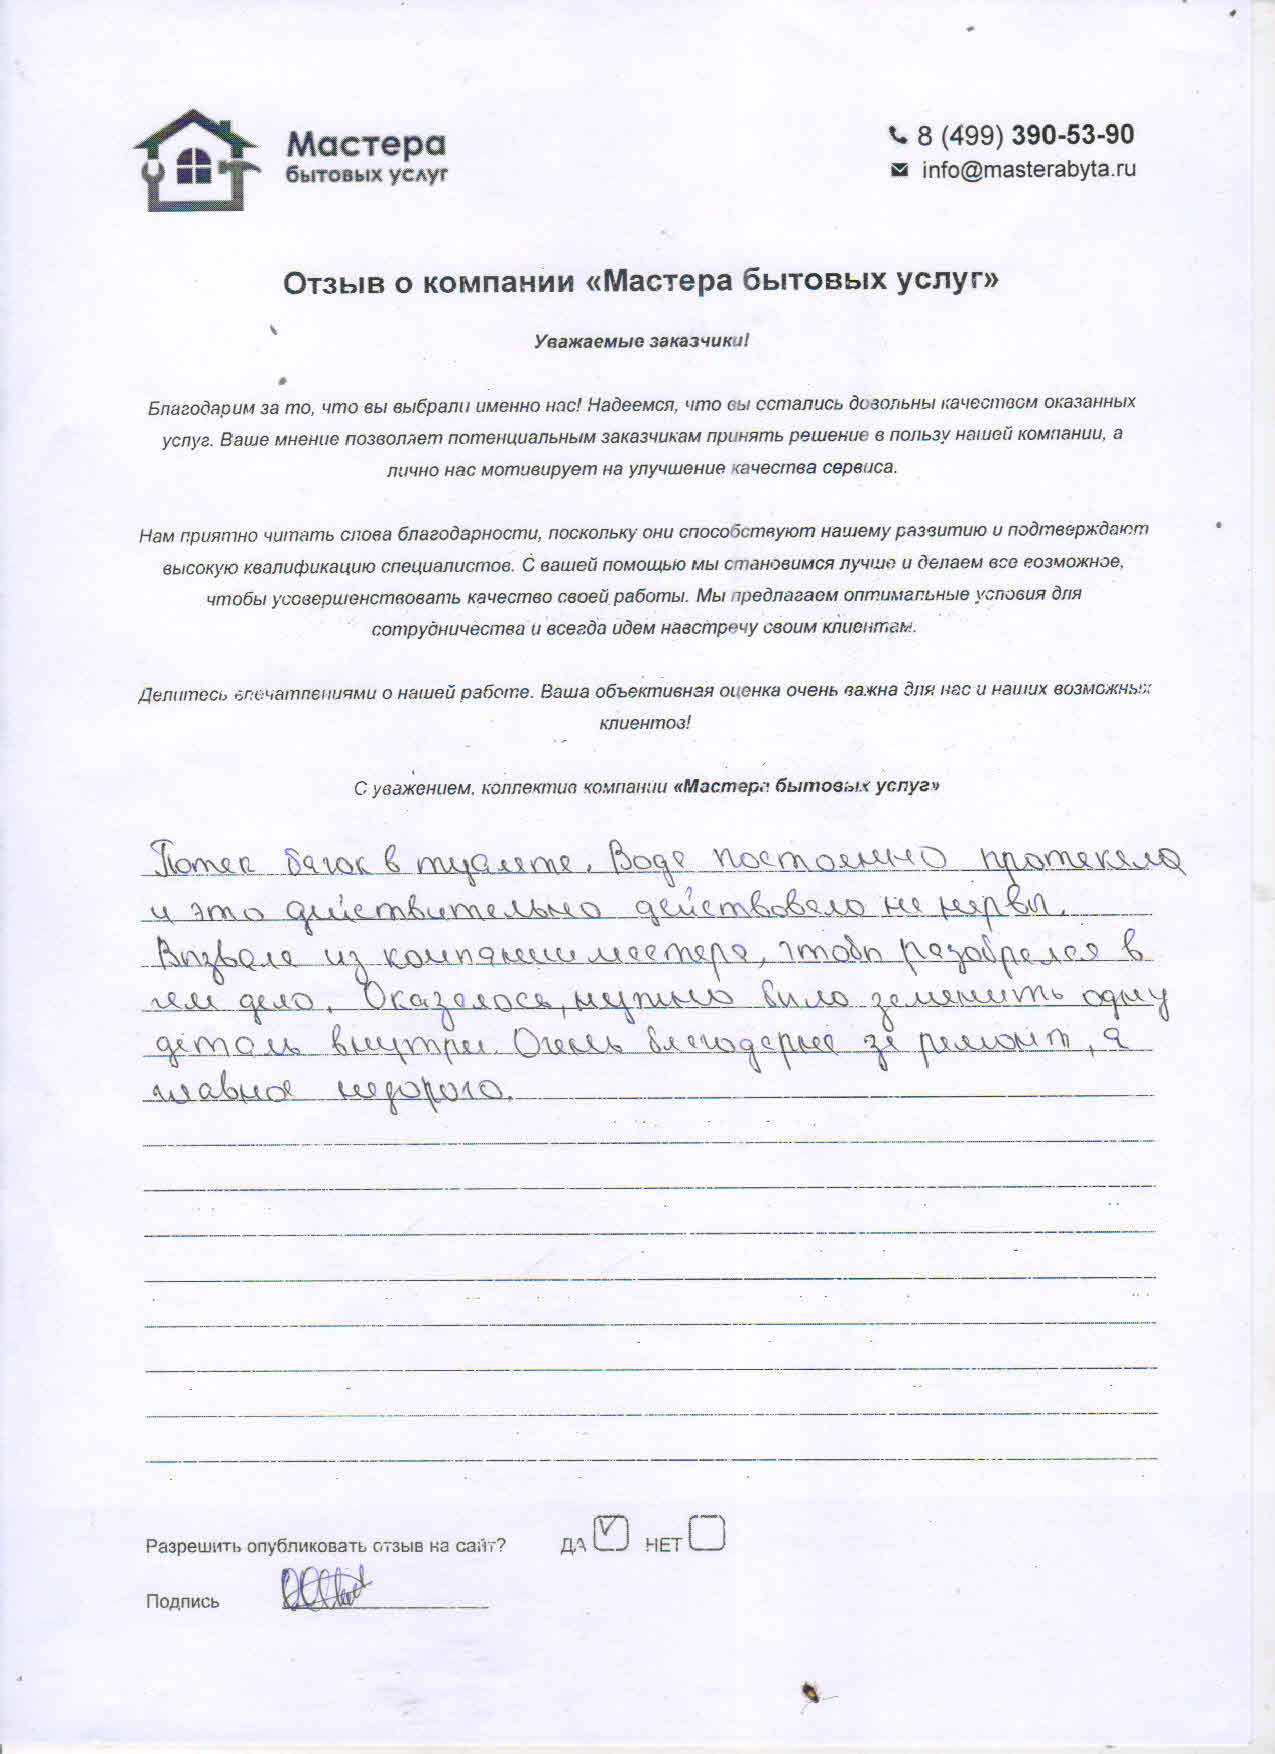 Мастера
бытовых услуг
8 (499) 390-53-90
info@masterabyta.ru
Отзыв о компании «Мастера бытовых услуг»
Уважаемые заказчики!
Благодарим за то, что вы выбрали именно нас! Надеемся, что вы остались довольны качеством оказанных
услуг. Ваше мнение позволяет потенциальным заказчикам принять решение в пользу нашей компании, а
лично нас мотивирует на улучшение качества сервиса.
Нам приятно читать слова благодарности, поскольку они способствуют нашему развитию и подтверждают
высокую квалификацию специалистов. С вашей помощью мы становимся лучше и делаем все возможное,
чтобы усовершенствовать качество своей работы. Мы предлагаем оптимальные условия для
сотрудничества и всегда идем навстречу своим клиентам.
Делитесь впечатлениями о нашей работе. Ваша объективная оценка очень важна для нас и наших возможных
клиентов!
С уважением, коллектив компании «Мастера бытовых услуг»
Потек бачок в туалете. Вода постоянно протекала
и это действительно действовало на нервы.
Вызвала из компании мастера, чтобы разобрался в
чем дело. Оказалось, нужно было заменить одну
деталь внутри. Очень благодарна за ремонт, а
главное недорого.
Разрешить опубликовать отзыв на сайт? ДА НЕТ
Подпись